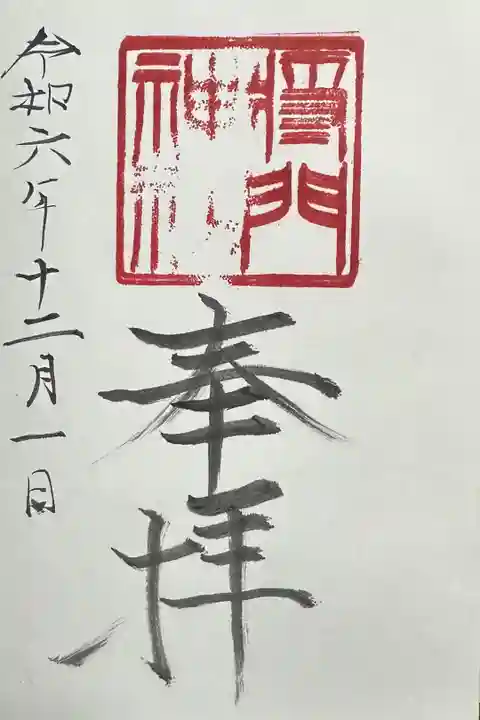 將門
神社
奉拝
令和六年十二月一日